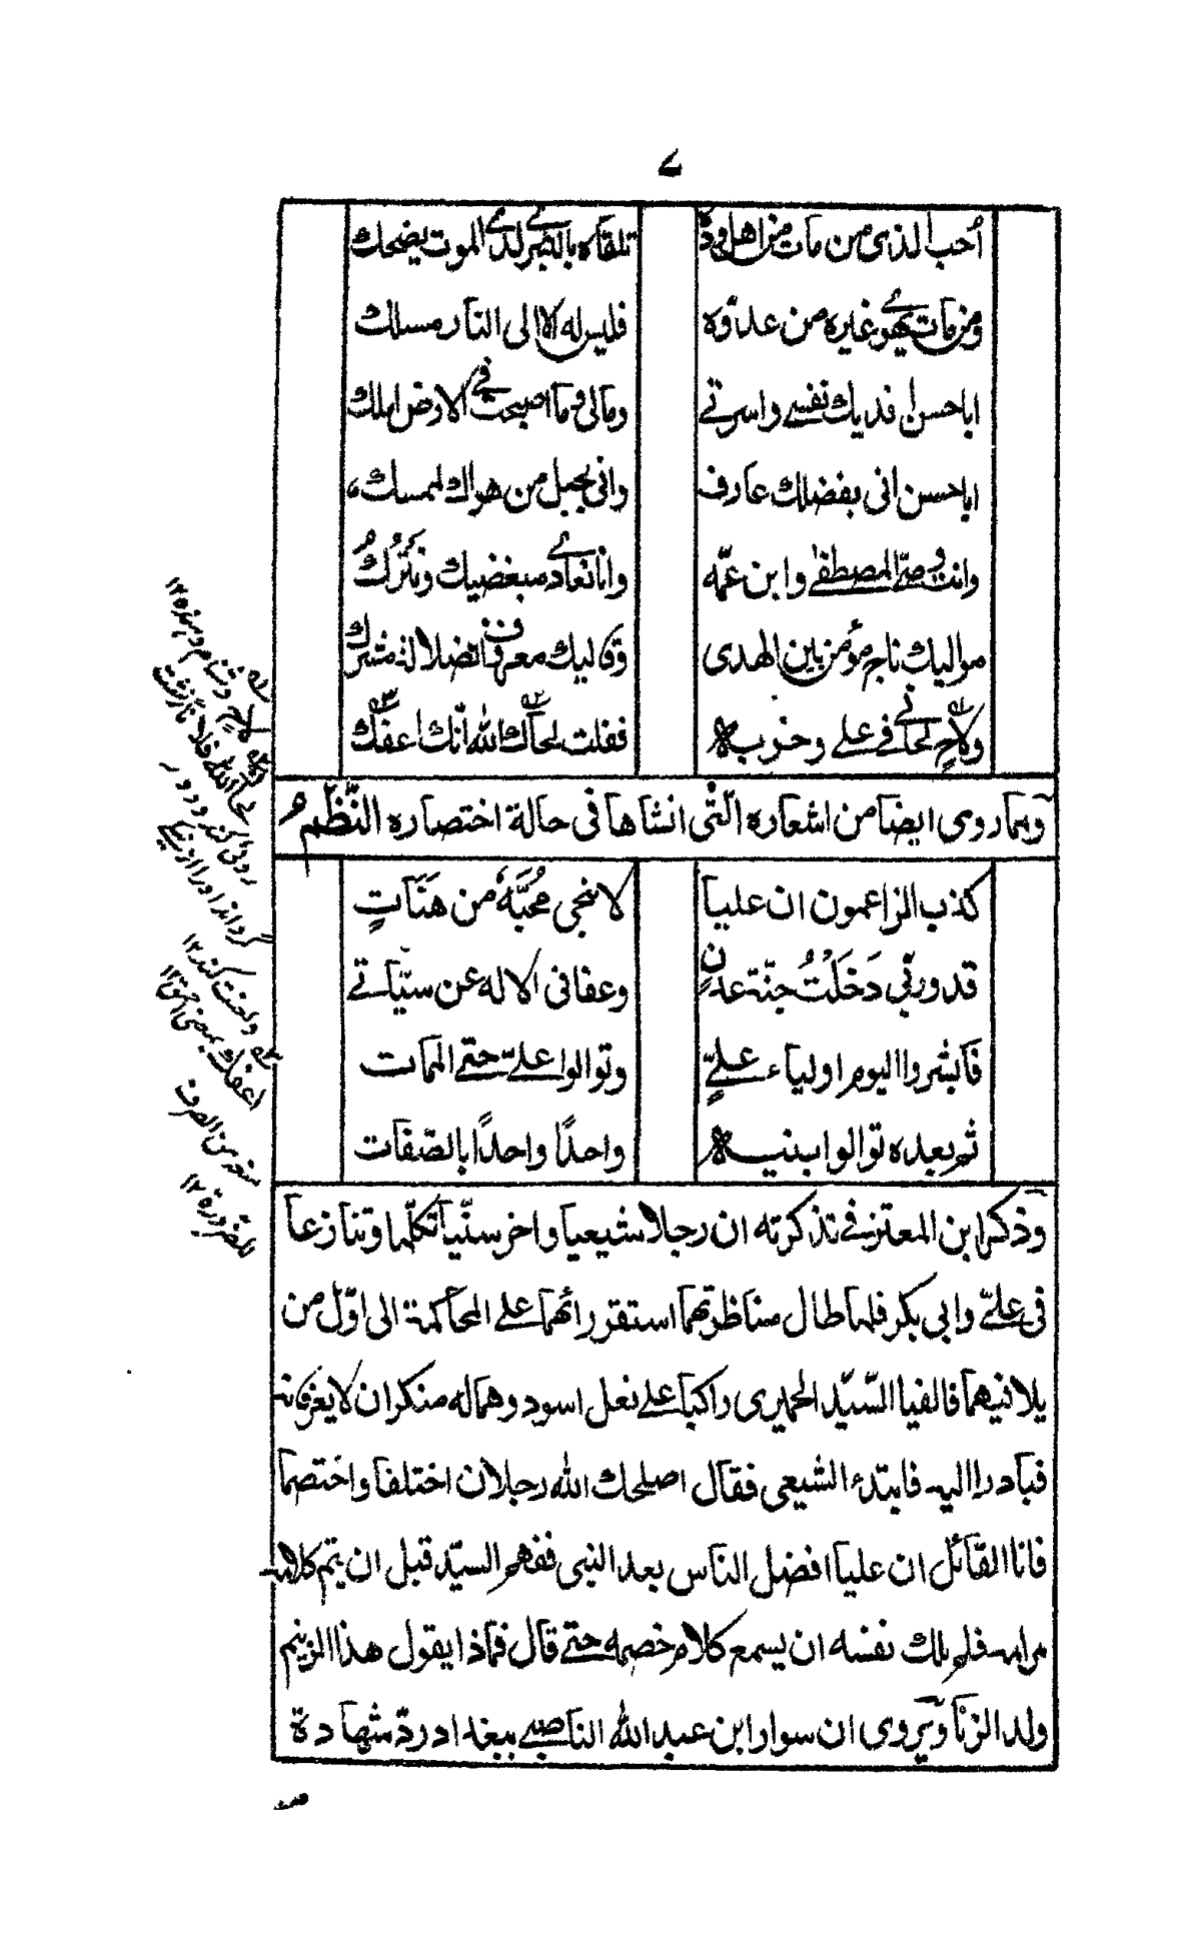 ٧
أحب الذي من مات من اهل وده تلقاه بالبشرى لدى الموت يضحك
ومن مات يهوى غيره من عداوه فليس له الا الى النار مسلك
ابا حسن افديك نفسي واسرتي ومالي وما اصبحت في الارض املك
ابا حسن اني بفضلك عارف واني بحبل من هواك لممسك
وانت وصيّ المصطفى وابن عمّه وانا نعادي مبغضيك ونتركُ
مواليك ناج مؤمن بين الهدى وقاليك معروف الضلالة مشرك
ولاحٍ لحاني في علي وحزبه فقلت لحاك الله انّك اعفك
ومما روى ايضا من اشعاره الّتي انشاها في حالة اختصاره النّظم
كذب الزاعمون ان عليا لا ينجي مُحبَّهُ من هَنَاتٍ
قد وربّي دَخَلْتُ جنّة عدنٍ وعفاني الاله عن سيّاتي
فابشروا اليوم اولياء عليٍّ وتوالوا عليّ حتى الممات
ثم بعده توالوا بنيه واحدًا واحدًا بالصّفات
وذكر ابن المعتز في تذكرته ان رجلا شيعيا واخر سنّيا تكلّما وتنازعا
في عليّ وابي بكر فلما طال مناظرتهما استقر رائهما على المحاكمة الى اوّل من
يلاقيهما فالفيا السّيّد الحميري راكبا على نعل اسود وهما له منكران لا يعرفانه
فبادرا اليه فابتدء الشيعي فقال اصلحك الله رجلان اختلفا واختصما
فانا القائل ان عليا افضل الناس بعد النبي ففهم السيّد قبل ان يتم كلامه
مرامه فلم يملك نفسه ان يسمع كلام خصمه حتى قال فماذا يقول هذا الزنيم
ولد الزنا ويروى ان سوار ابن عبد الله الناصبي ببغداد ردّ شهادة
لاحٍ دشنام دهنده ١٢
لحا الله فلانا زشت
روئي كند و دور
گرداند او را از نيكي
ولعنت كند ١٢
اعفك بمعنى احمق ١٢
منعه من الصرف
للضرورة ١٢